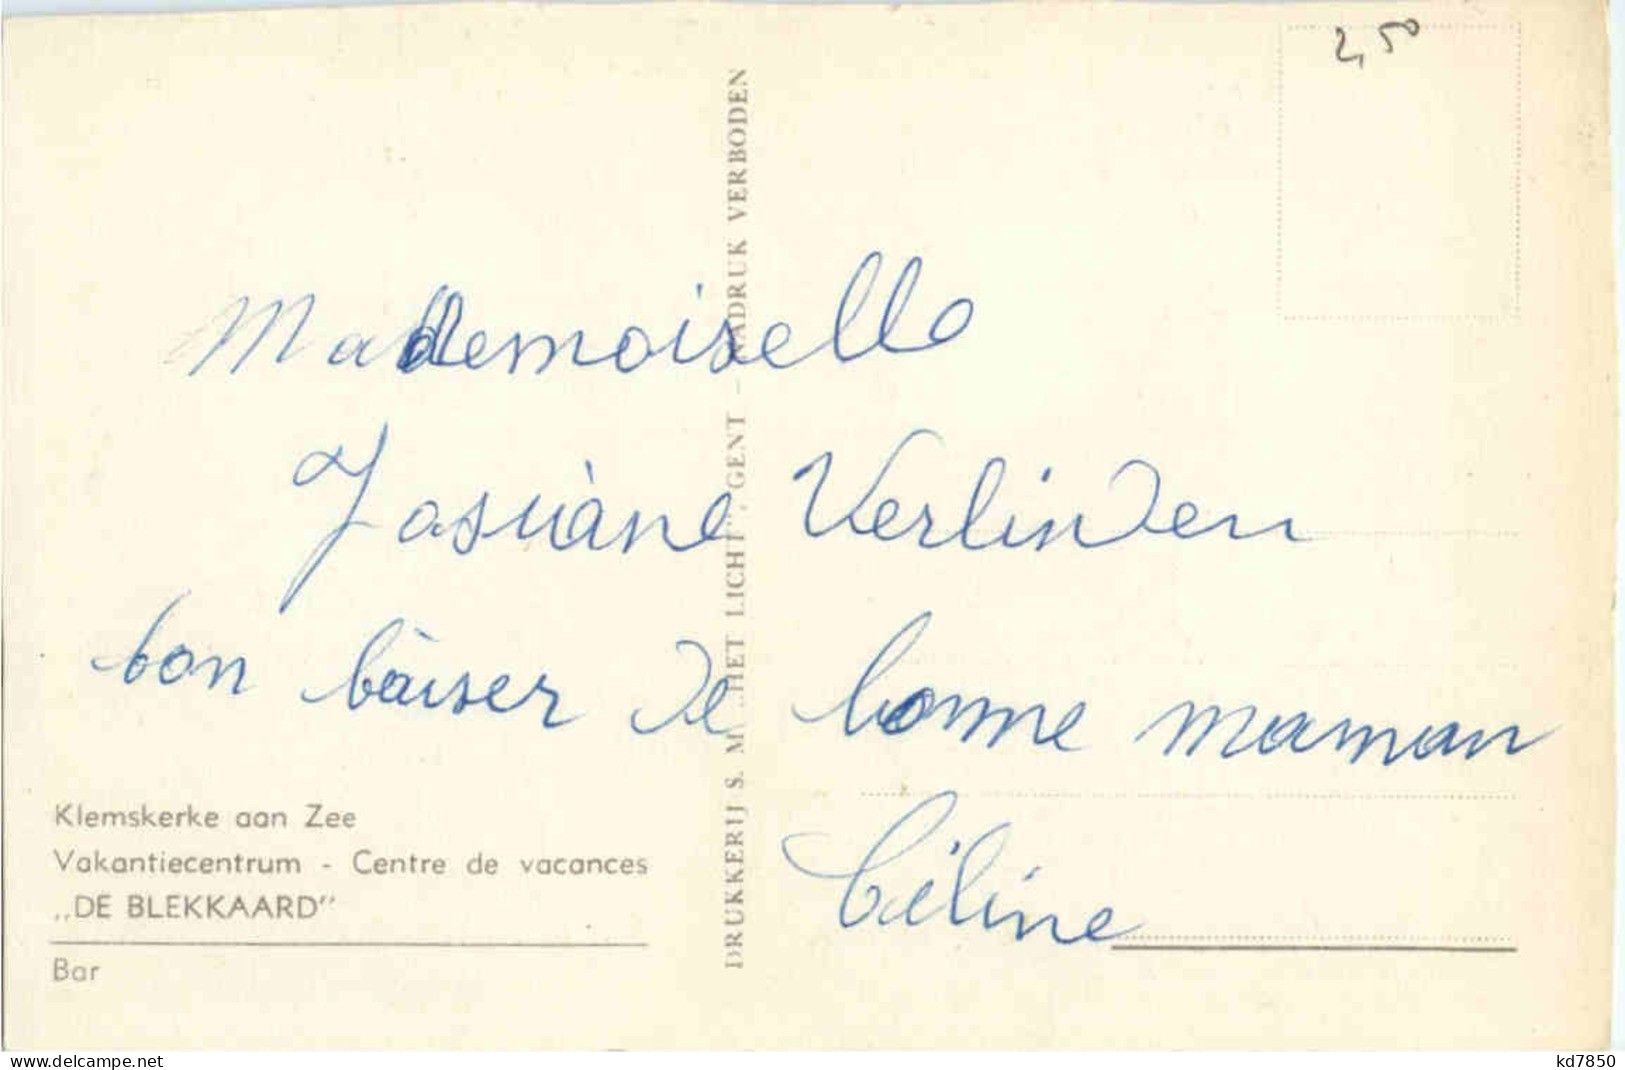 2,50
Mademoiselle
Josiàne Verlinden
bon bàiser de bonne maman
Céline
Klemskerke aan Zee
Vakantiecentrum - Centre de vacances
„DE BLEKKAARD”
Bar
DRUKKERIJ S. M. „HET LICHT”, GENT - NADRUK VERBODEN
www.delcampe.net
kd7850